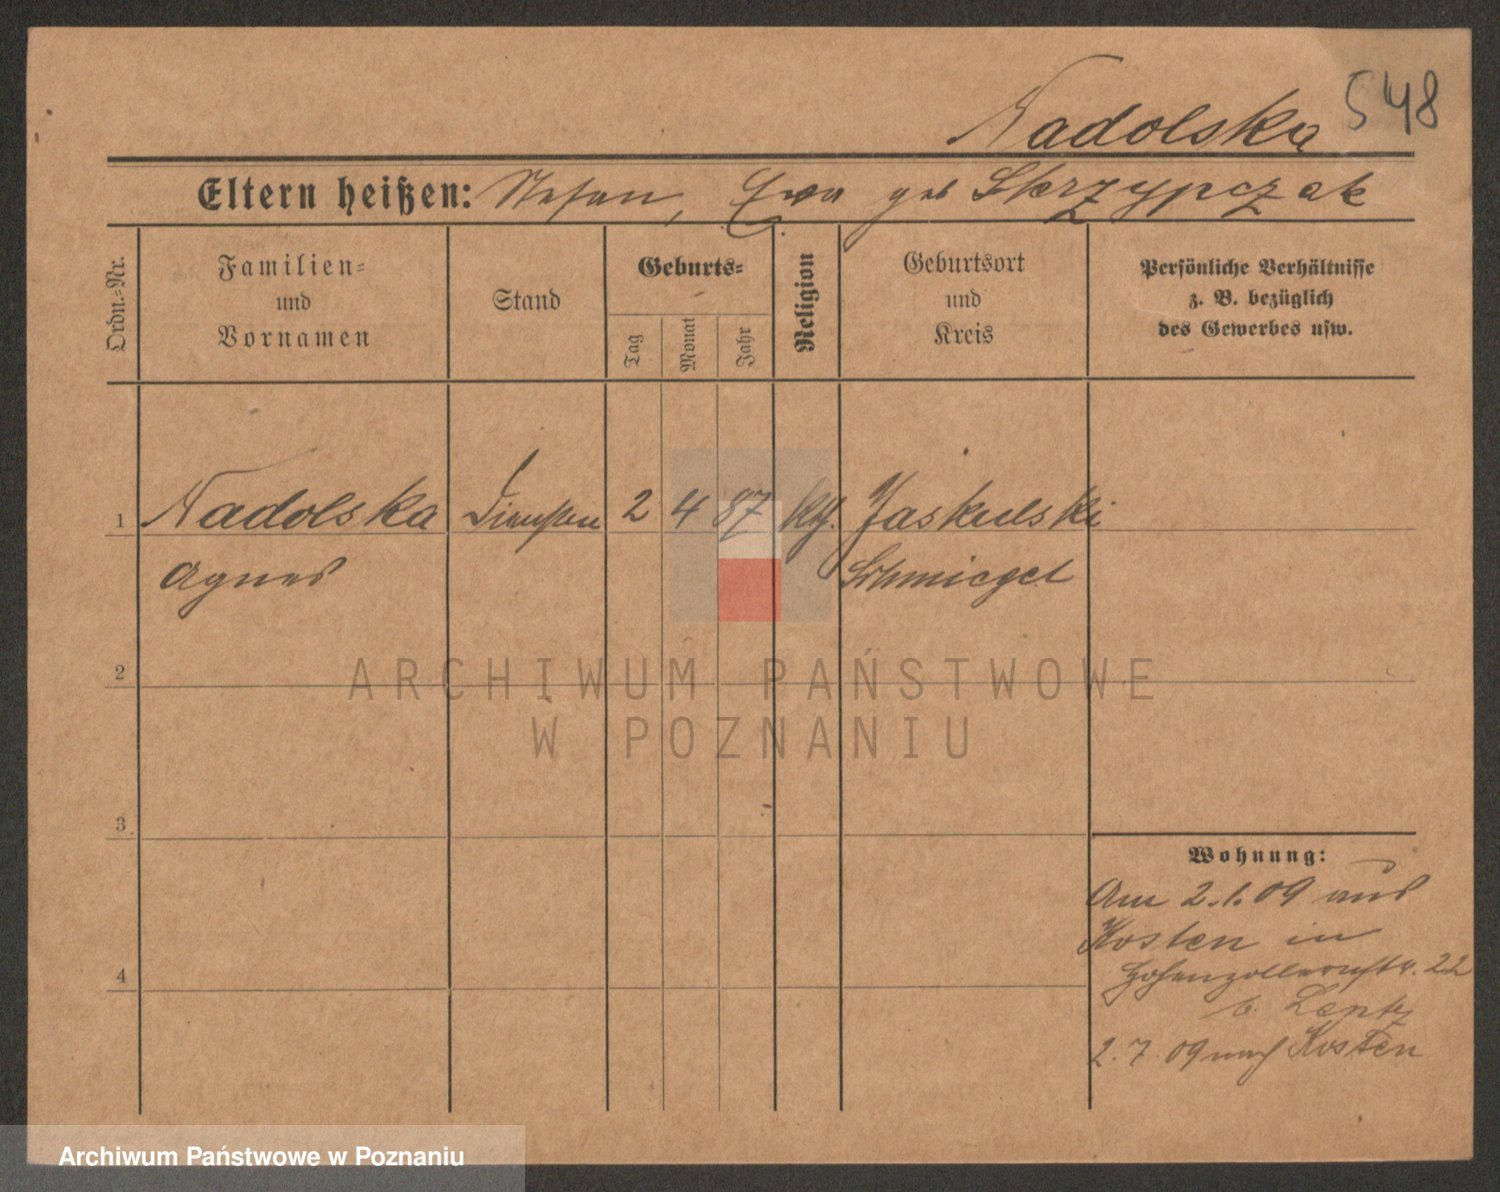 Nadolska 548
Eltern heißen: Stefan, Ewa geb Skrzypczak
Ordn.-Nr.
Familien-
und
Vornamen
Stand
Geburts-
Tag
Monat
Jahr
Religion
Geburtsort
und
Kreis
Persönliche Verhältnisse
z. B. bezüglich
des Gewerbes usw.
1 Nadolska 2 4 87 kth. Jaskulski
Agnes Schmiegel
2
ARCHIWUM PAŃSTWOWE
W POZNANIU
3
Wohnung:
Am 2.1.09 aus
Kosten in
4 Hohenzollernstr. 22
b. Lentz
2.7.09 nach Kosten
Archiwum Państwowe w Poznaniu